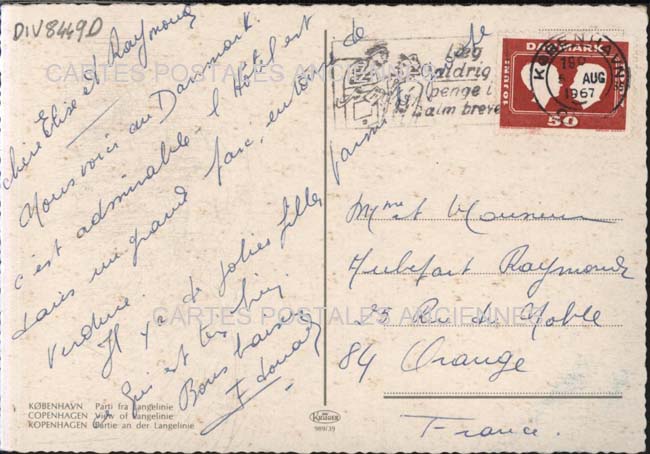 DIV8449D
chère Elise et Raymond
Nous voici au Danmark.
c'est admirable l'Hôtel est
dans un grand parc, entouré de
verdure. Il y a de jolies filles parmi
ce qui est très bien
Bons baisers
Edouard
CARTES POSTALES ANCIENNES
CARTES POSTALES ANCIENNES
Læg
aldrig
penge i
alm breve
KØBENHAVN
AUG
1967
DANMARK
10 JUNI
50
Mme et Monsieur
Raymond
25 Rue du Noble
84 Orange
France.
KØBENHAVN Parti fra Langelinie
COPENHAGEN View of Langelinie
KOPENHAGEN Partie an der Langelinie
KRÜGER
989/39